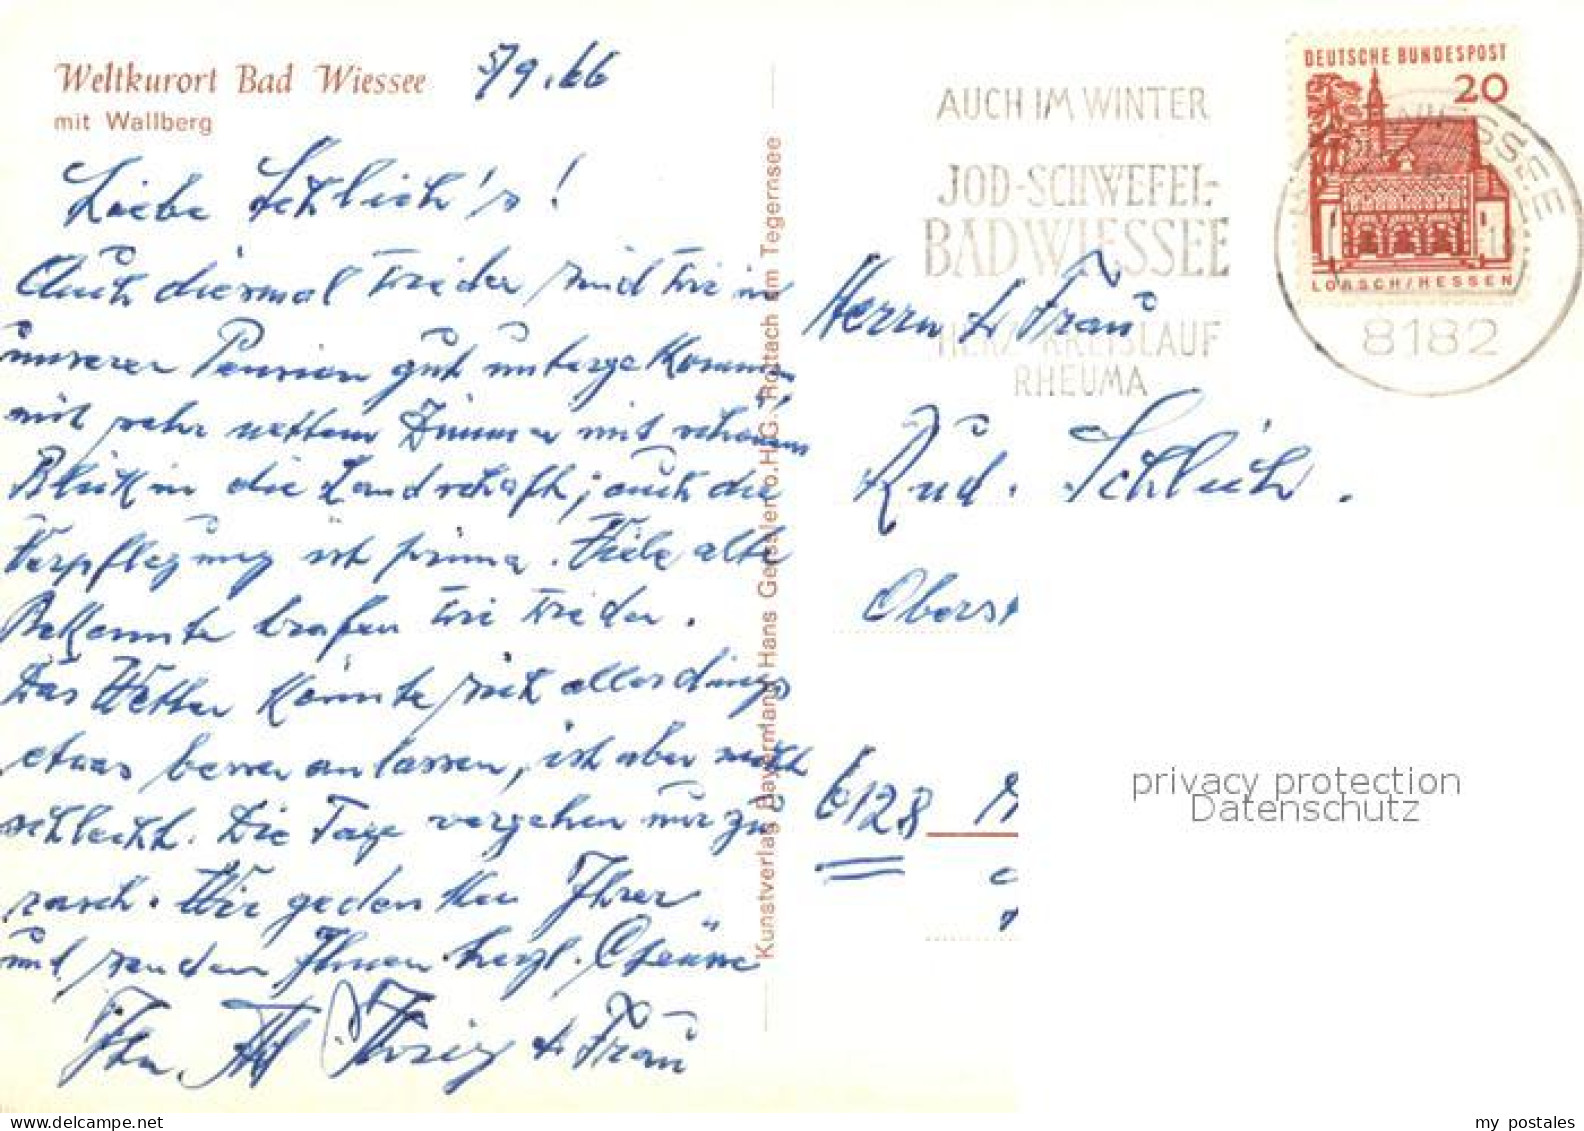 Weltkurort Bad Wiessee
mit Wallberg
5/9.66
Liebe Schleich's!
Auch diesmal wieder sind wir in
unserer Pension gut untergekommen
mit sehr nettem Zimmer mit schönem
Blick in die Landschaft; auch die
Verpflegung ist prima. Viele alte
Bekannte trafen wir wieder.
Das Wetter könnte sich allerdings
etwas besser anlassen, ist aber nicht
schlecht. Die Tage vergehen nur zu
rasch. Wir gedenken Ihrer
und senden Ihnen herzl. Grüsse
Ihr & Frau
Kunstverlag Bayermann Hans Gensslen o.H.G. Rottach am Tegernsee
AUCH IM WINTER
JOD-SCHWEFEL-
BAD WIESSEE
HERZ-KREISLAUF
RHEUMA
DEUTSCHE BUNDESPOST
20
LORSCH/HESSEN
WIESSEE
8182
Herrn & Frau
Rud. Schleich.
Oberst
6128
privacy protection
Datenschutz
my postales